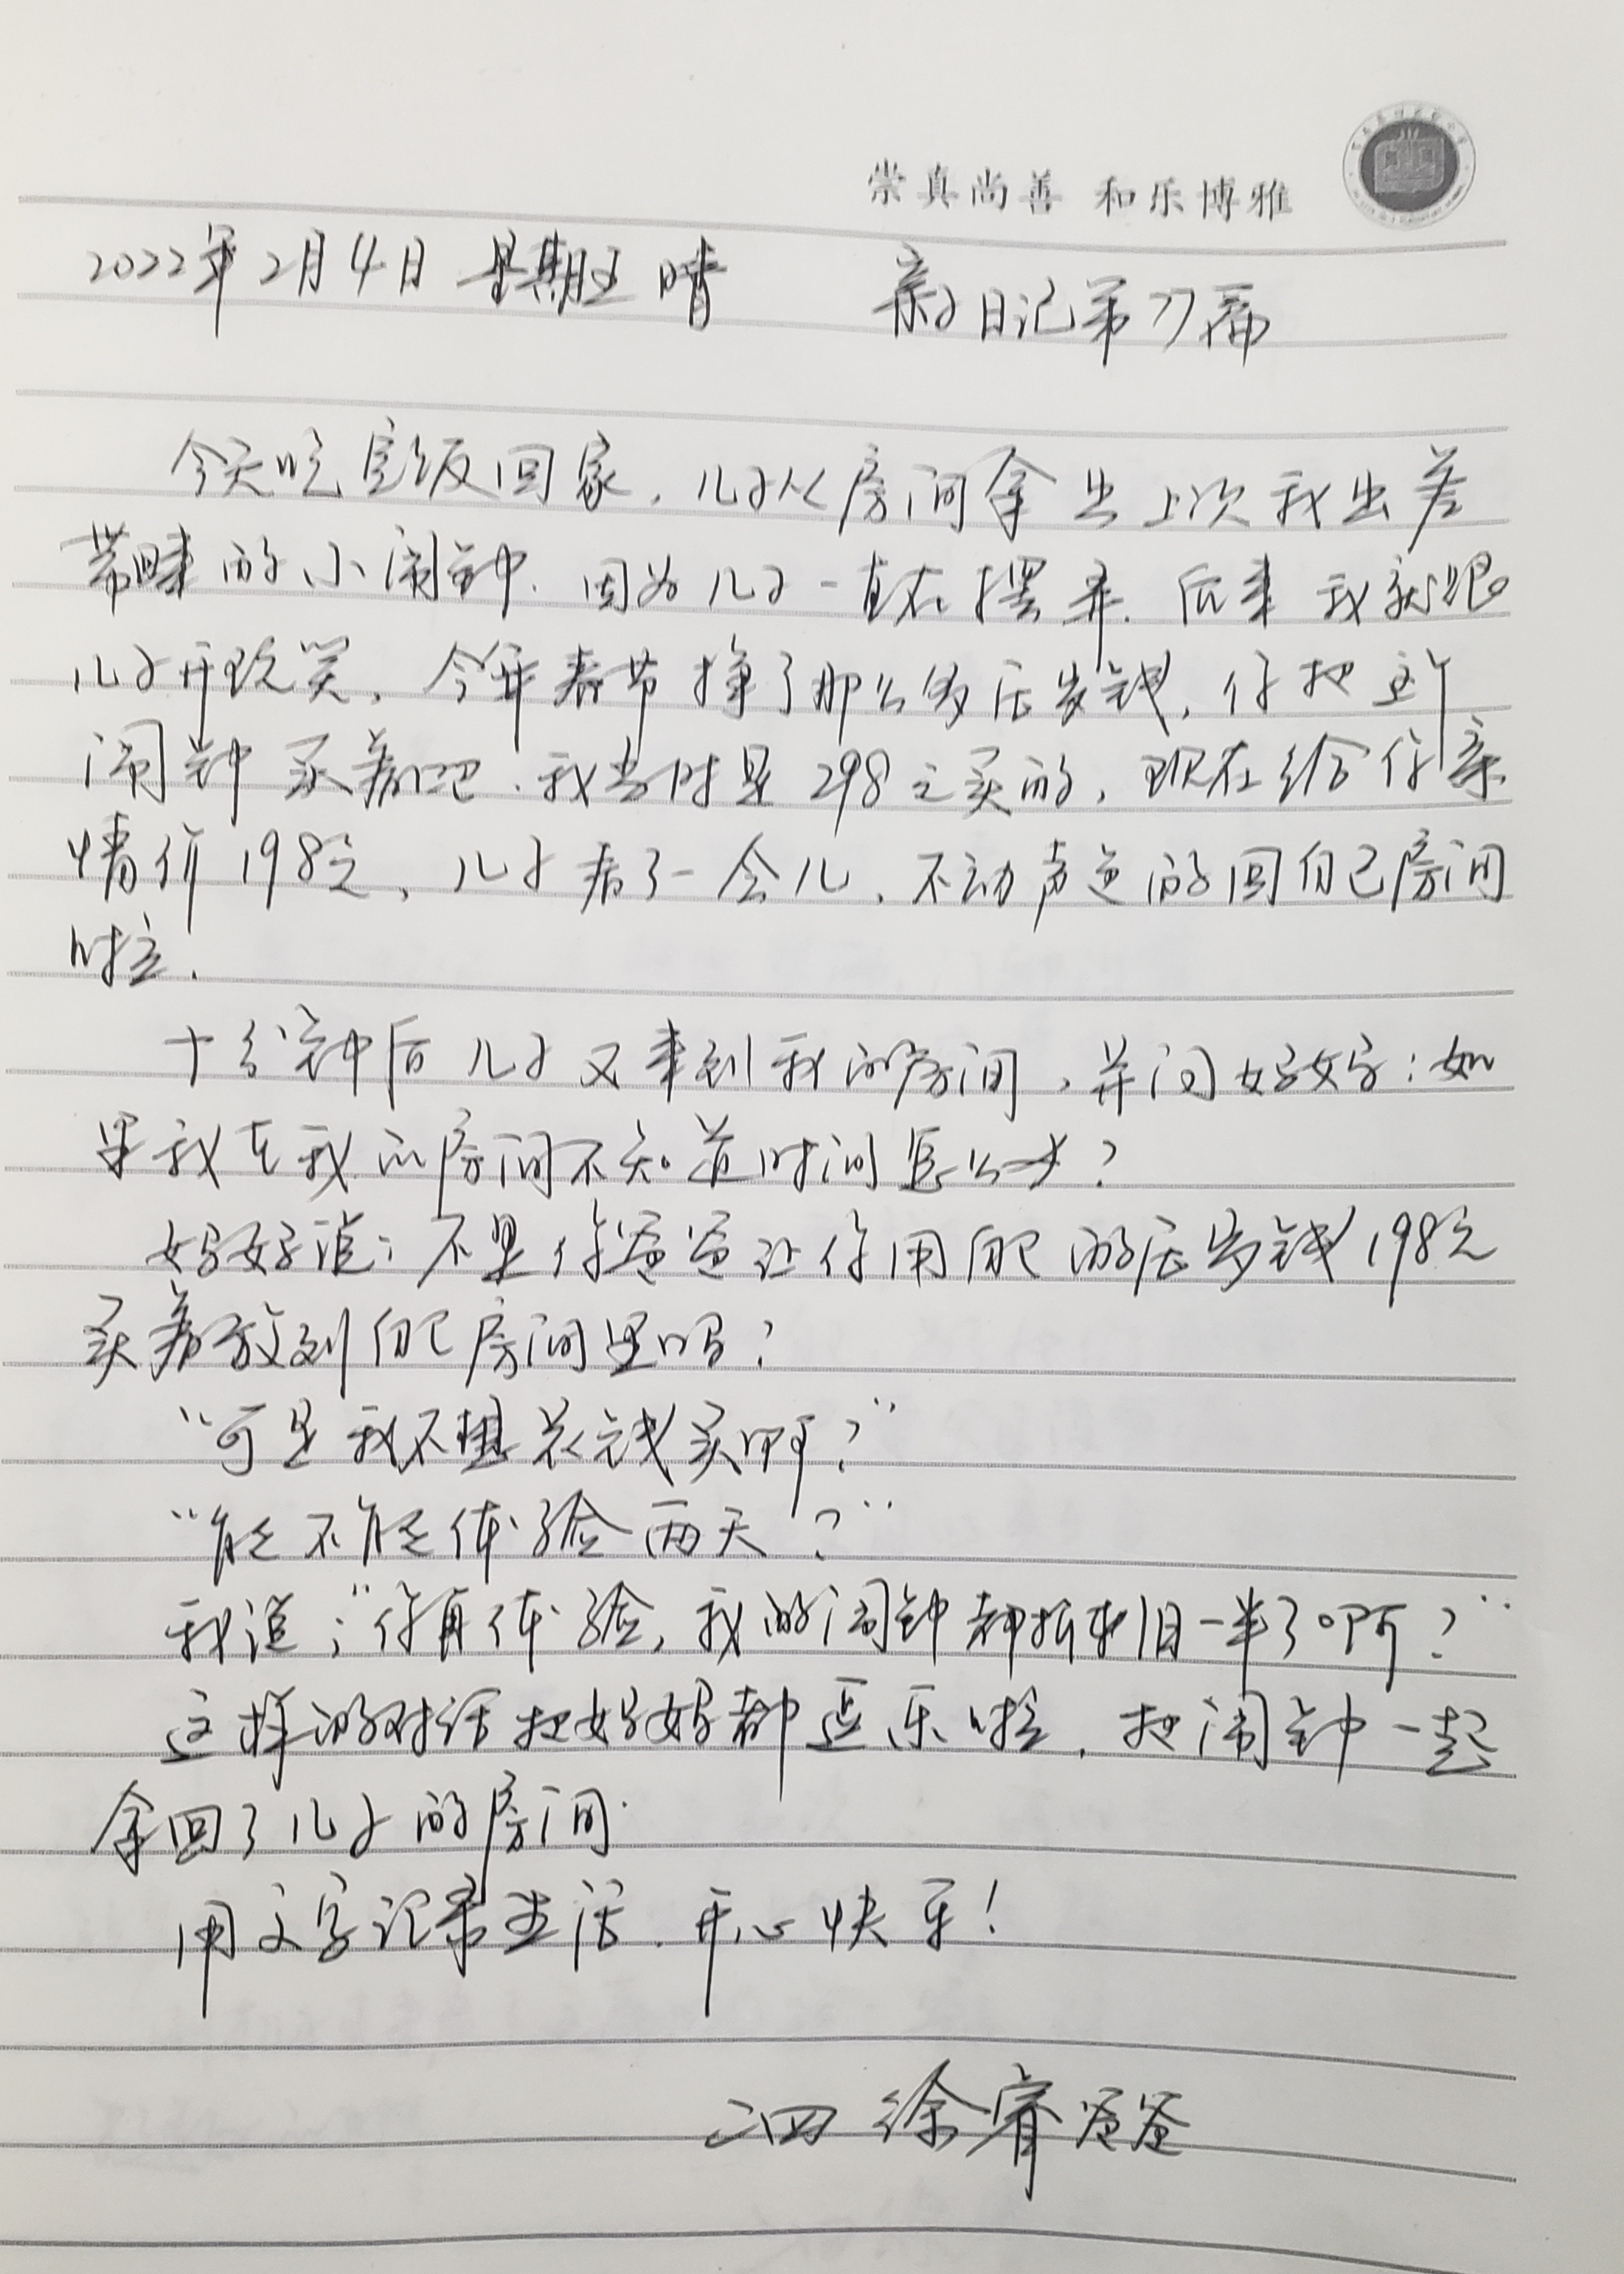 崇真尚善 和乐博雅
2022年2月4日 星期五 晴 亲子日记第77篇
今天吃完饭回家，儿子从房间拿出上次我出差
带回来的小闹钟．因为儿子一直在摆弄．后来我就跟
儿子开玩笑，今年春节挣了那么多压岁钱，你把这个
闹钟买着吧．我当时是298元买的，现在给你亲
情价198元，儿子看了一会儿，不动声色的回自己房间
啦．
十分钟后儿子又来到我的房间，并问妈妈：如
果我在我的房间不知道时间怎么办？
妈妈说：不是你爸爸让你用自己的压岁钱198元
买着放到自己房间里吗？
“可是我不想花钱买啊？”
“能不能体验两天？”
我说：“你再体验，我的闹钟都折旧一半了啊？”
这样的对话把妈妈都逗乐啦，把闹钟一起
拿回了儿子的房间．
用文字记录生活．开心快乐！
徐睿爸爸